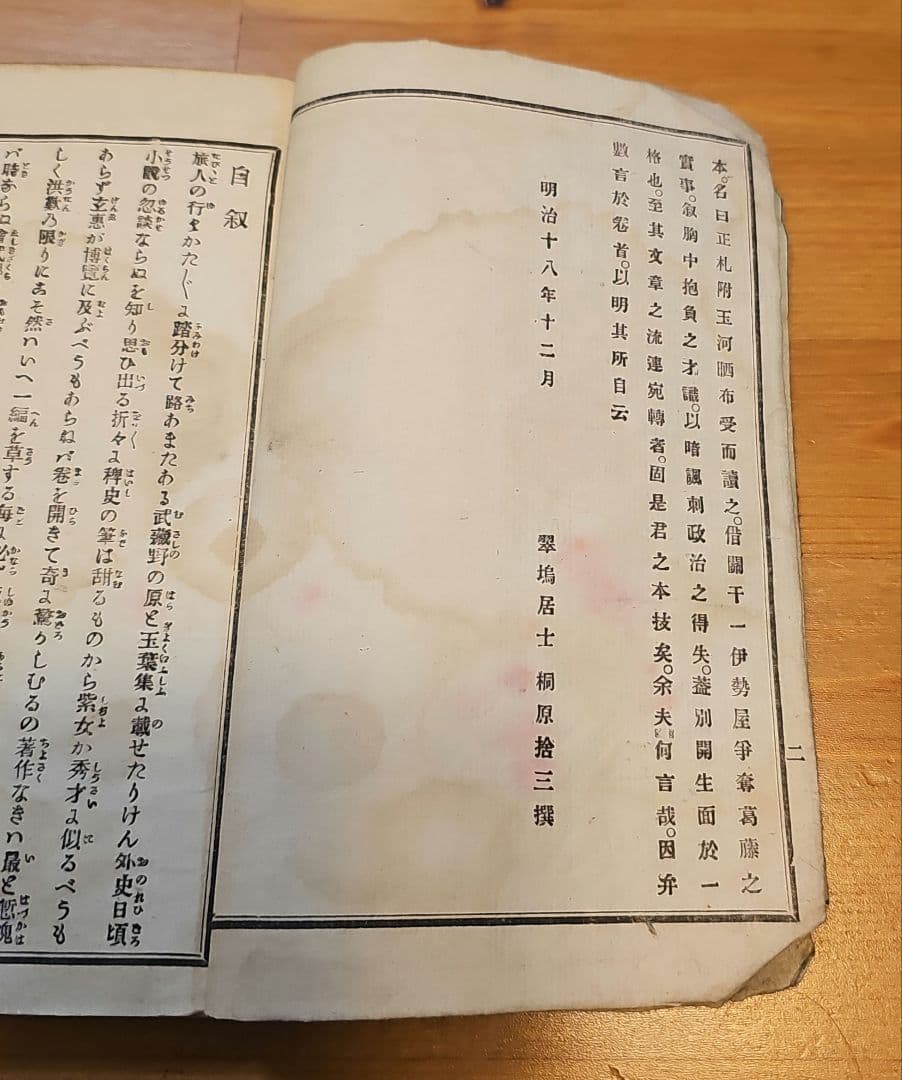 本。名曰正札附玉河晒布受而讀之。借關于一伊勢屋爭奪葛藤之
實事。叙胸中抱負之才識。以暗諷刺政治之得失。葢別開生面於一
格也。至其文章之流連宛轉者。固是君之本技矣。余夫何言哉。因弁
數言於卷首。以明其所自云
明治十八年十二月
翠塢居士 桐原捨三撰
二
自叙
旅人の行くかた〴〵に踏分けて路あまたある武藏野の原と玉葉集に載せたりけん外史日頃
小說の忽談ならぬを知り思ひ出る折々に稗史の筆は甜るものから紫女か秀才に似るべうも
あらず玄惠が博覽に及ぶべうもあらねバ卷を開きて奇に驚かしむるの著作なきハ最と慙愧
しく洪歎乃限りにこそ然ハいへ一編を草する每に
バ時ならぬ